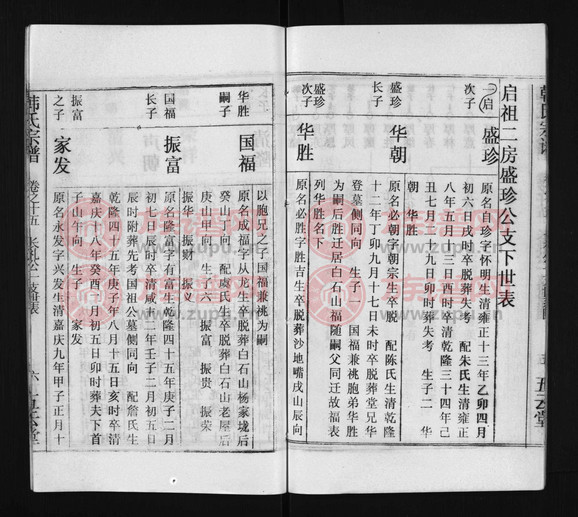 启祖二房盛珍公支下世表
启
次子
盛珍
原名自珍字怀明生清雍正十三年乙卯四月
初六日戌时卒脱葬失考 配朱氏生清雍正
八年 五月 三日酉时卒清乾隆三十四年己
丑七月二十九日卯时葬失考 生子二 华
朝 华胜
盛珍
长子
华朝
原名必朝字朝宗生卒脱 配陈氏生清乾隆
十二年丁卯九月十七日未时卒脱葬堂兄华
登墓侧同向 生子一 国福兼祧胞弟华胜
为嗣后胜迁居白石山福随嗣父同迁故福表
列华胜名下
盛珍
次子
华胜
原名必胜字胜吉生卒脱葬沙地嘴戌山辰向
以胞兄之子国福兼祧为嗣
华胜
嗣子
国福
原名成福字从龙生卒脱葬白石山杨家垅后
癸山 向 配虞氏 卒脱葬白石山老屋后
庚山甲向 生子六 振富 振贵 振荣
振华 振财 振义
国福
长子
振富
原名隆富字有富生乾隆四十五年庚子二月
初七日辰时卒清咸丰二年壬子二月初五日
辰时附葬先考国祖公墓侧同向 配詹氏生
乾隆四十五年庚子年八月十五日亥时卒清
嘉庆十八年癸酉 月初五日卯时葬夫下首
子山午向 生子 家发
振富
之子
家发
原名永发字兴发生清嘉庆九年甲子正月十
韩氏宗谱
卷之十五
六
五云堂